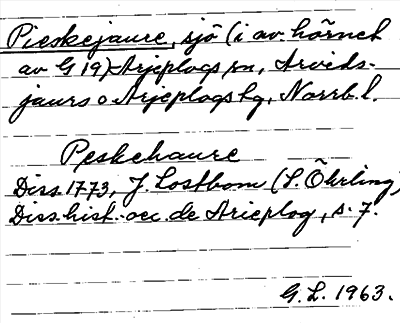 Pieskejaure, sjö (i av hörnet
av G 19) Arjeplogs sn, Arvids-
jaurs o Arjeplogs tg, Norrb. l.
Peskehaure
Diss. 1773, J. Lostbom (L. Öhrling)
Diss. hist.-oec. de Arieplog, s. 7.
G. L. 1963.